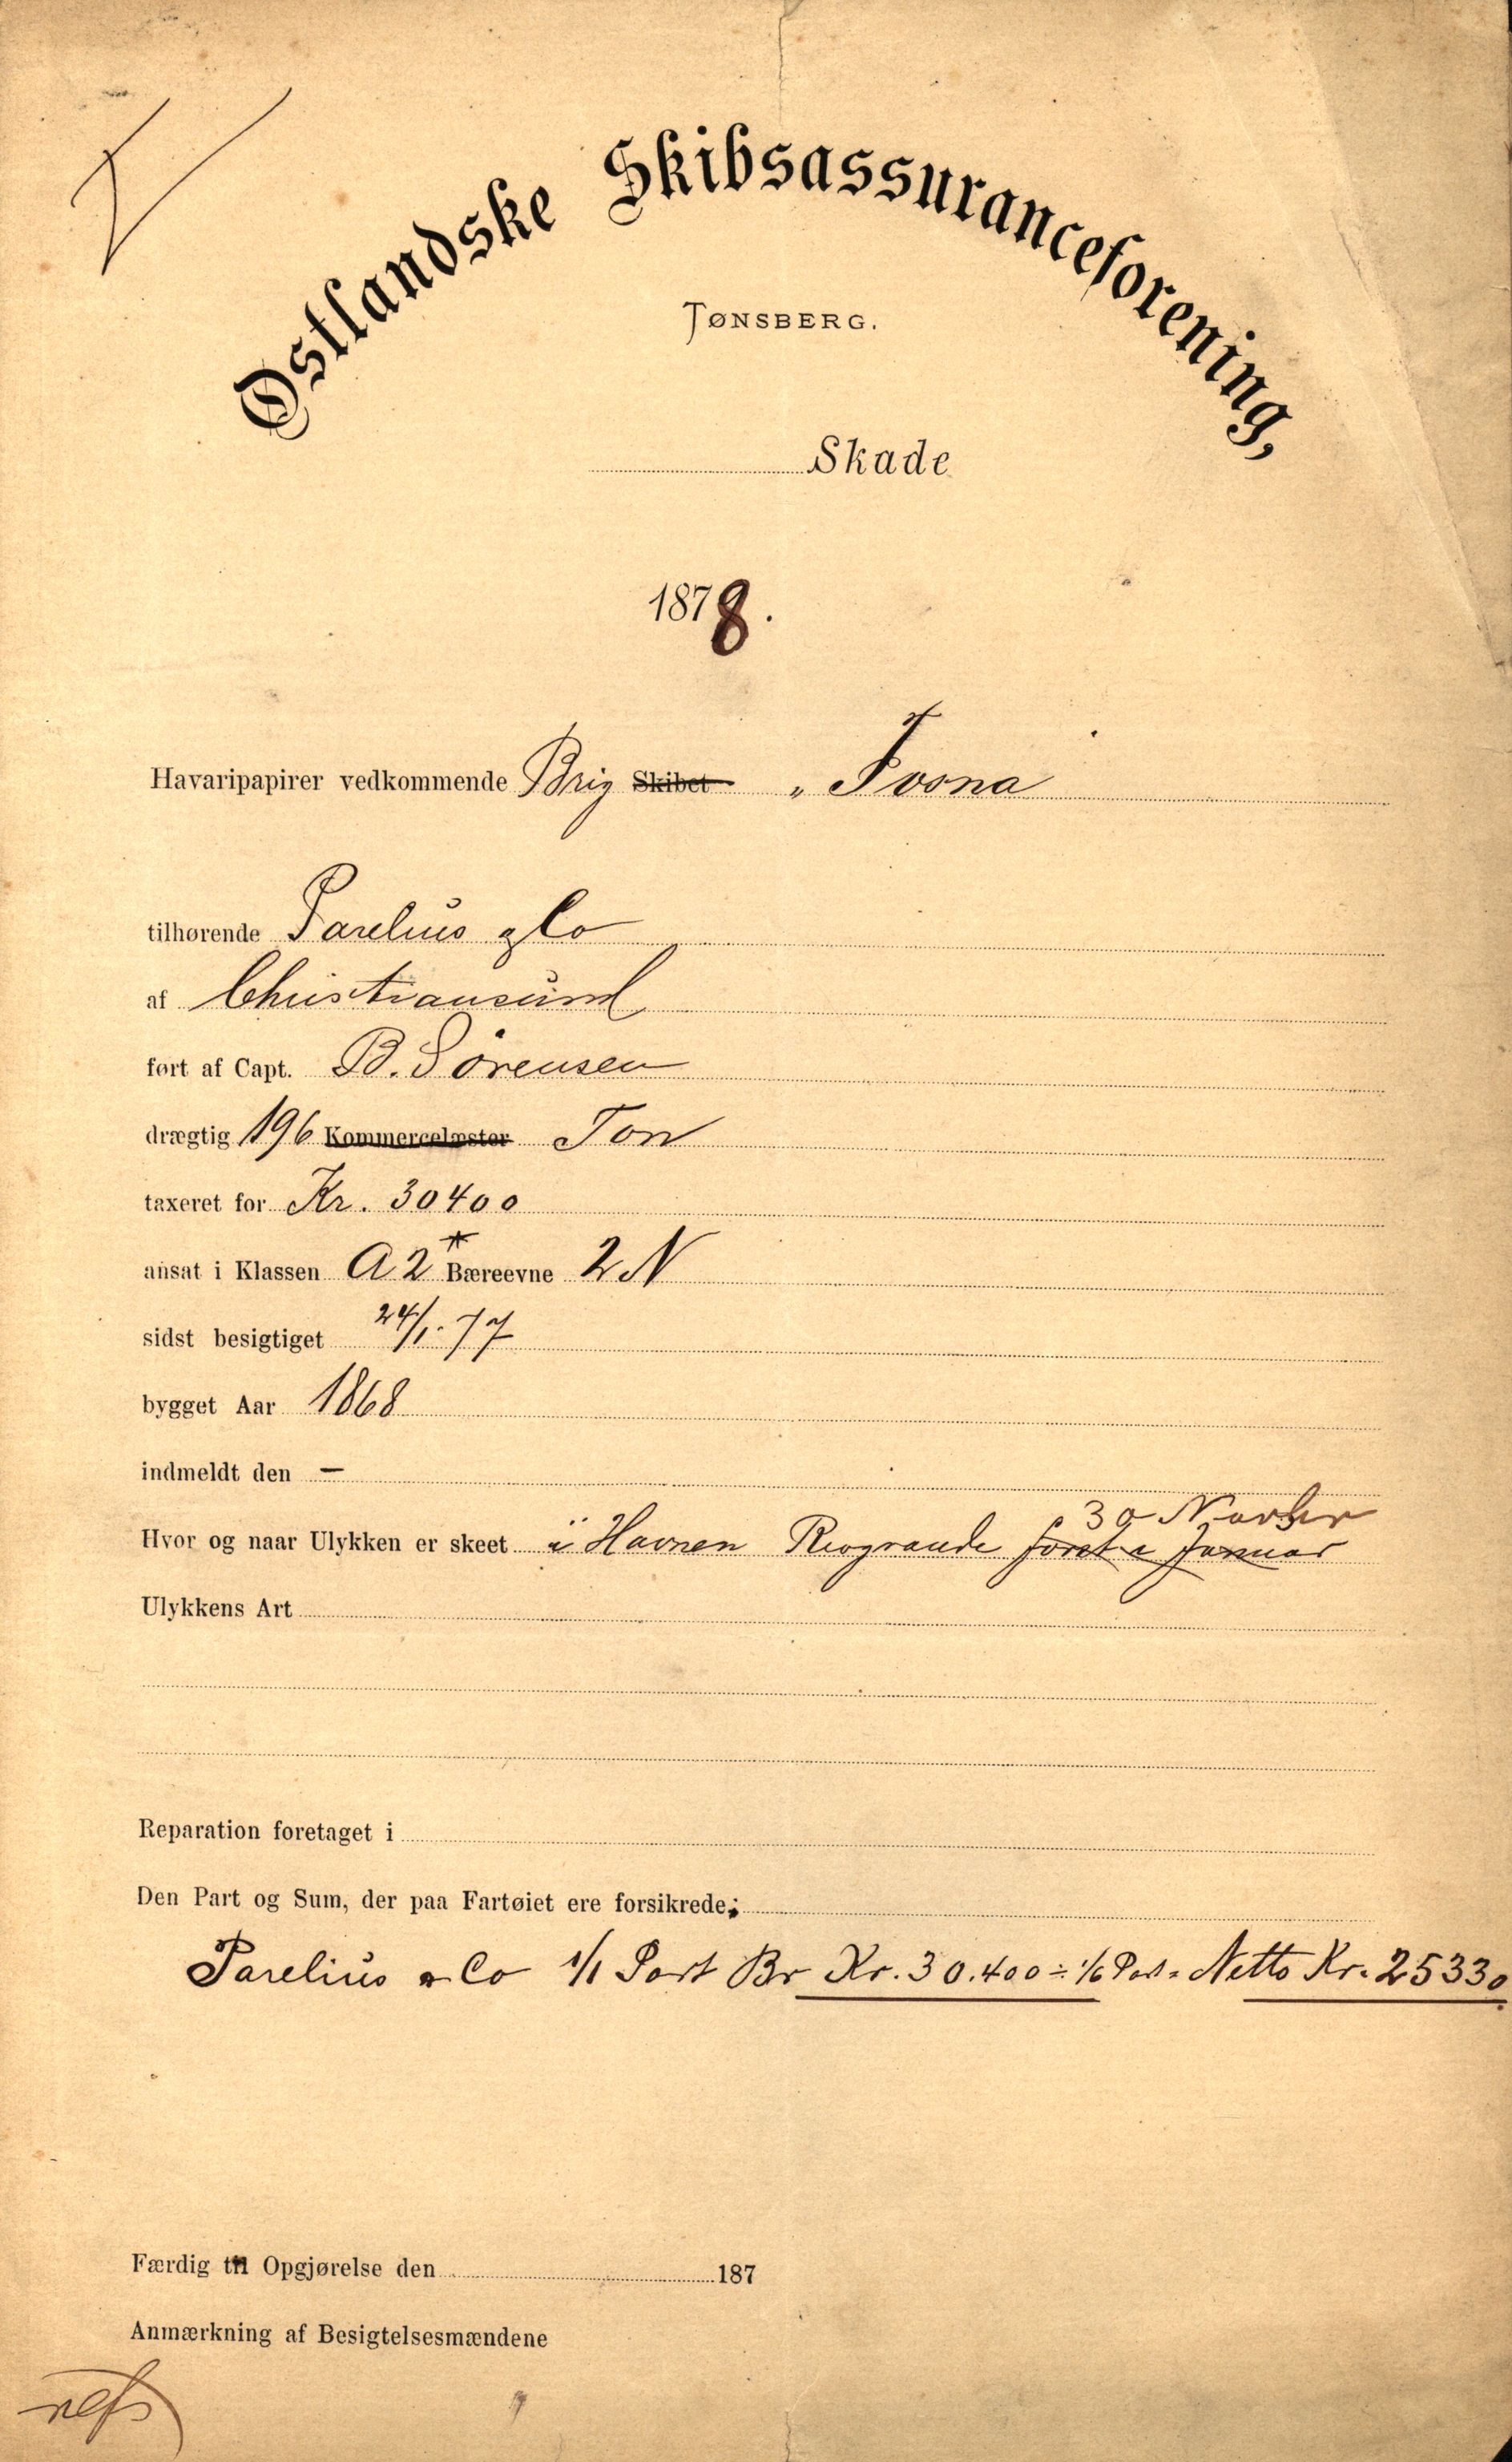 Østlandske Skibsassuranceforening,
TØNSBERG.
Skade
1878.
Havaripapirer vedkommende Brig Skibet „ Ivona
tilhørende Parelius & Co
af Christiansund
ført af Capt. B. Sörensen
drægtig 196 Kommercelæster Ton
taxeret for Kr. 30400
ansat i Klassen A2* Bæreevne 2 N
sidst besigtiget 24/1. 77
bygget Aar 1868
indmeldt den —
30 Novber
Hvor og naar Ulykken er skeet i Havnen Riogrande först i Januar
Ulykkens Art
Reparation foretaget i
Den Part og Sum, der paa Fartøiet ere forsikrede;
Parelius & Co 1/1 Part Br Kr. 30.400 ÷ 1/6 Part = Netto Kr. 25330.
Færdig til Opgjørelse den 187
Anmærkning af Besigtelsesmændene